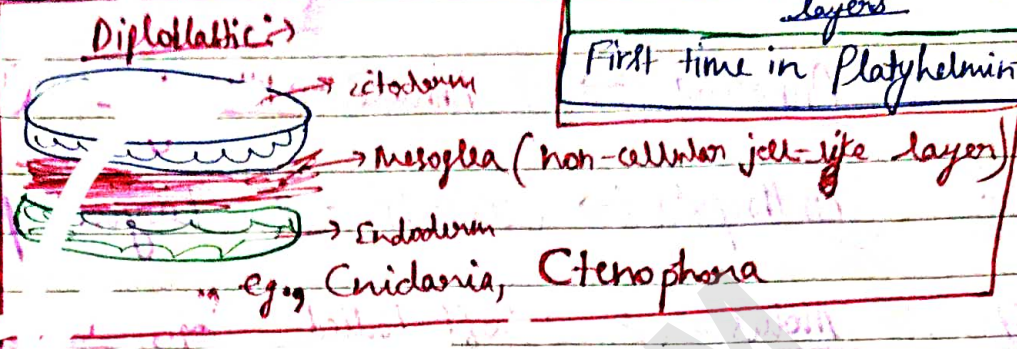 layers
Diploblastic:→
First time in Platyhelmin
→ ectoderm
→ Mesoglea (non-cellular jell-like layer)
→ Endoderm
eg., Cnidaria, Ctenophora